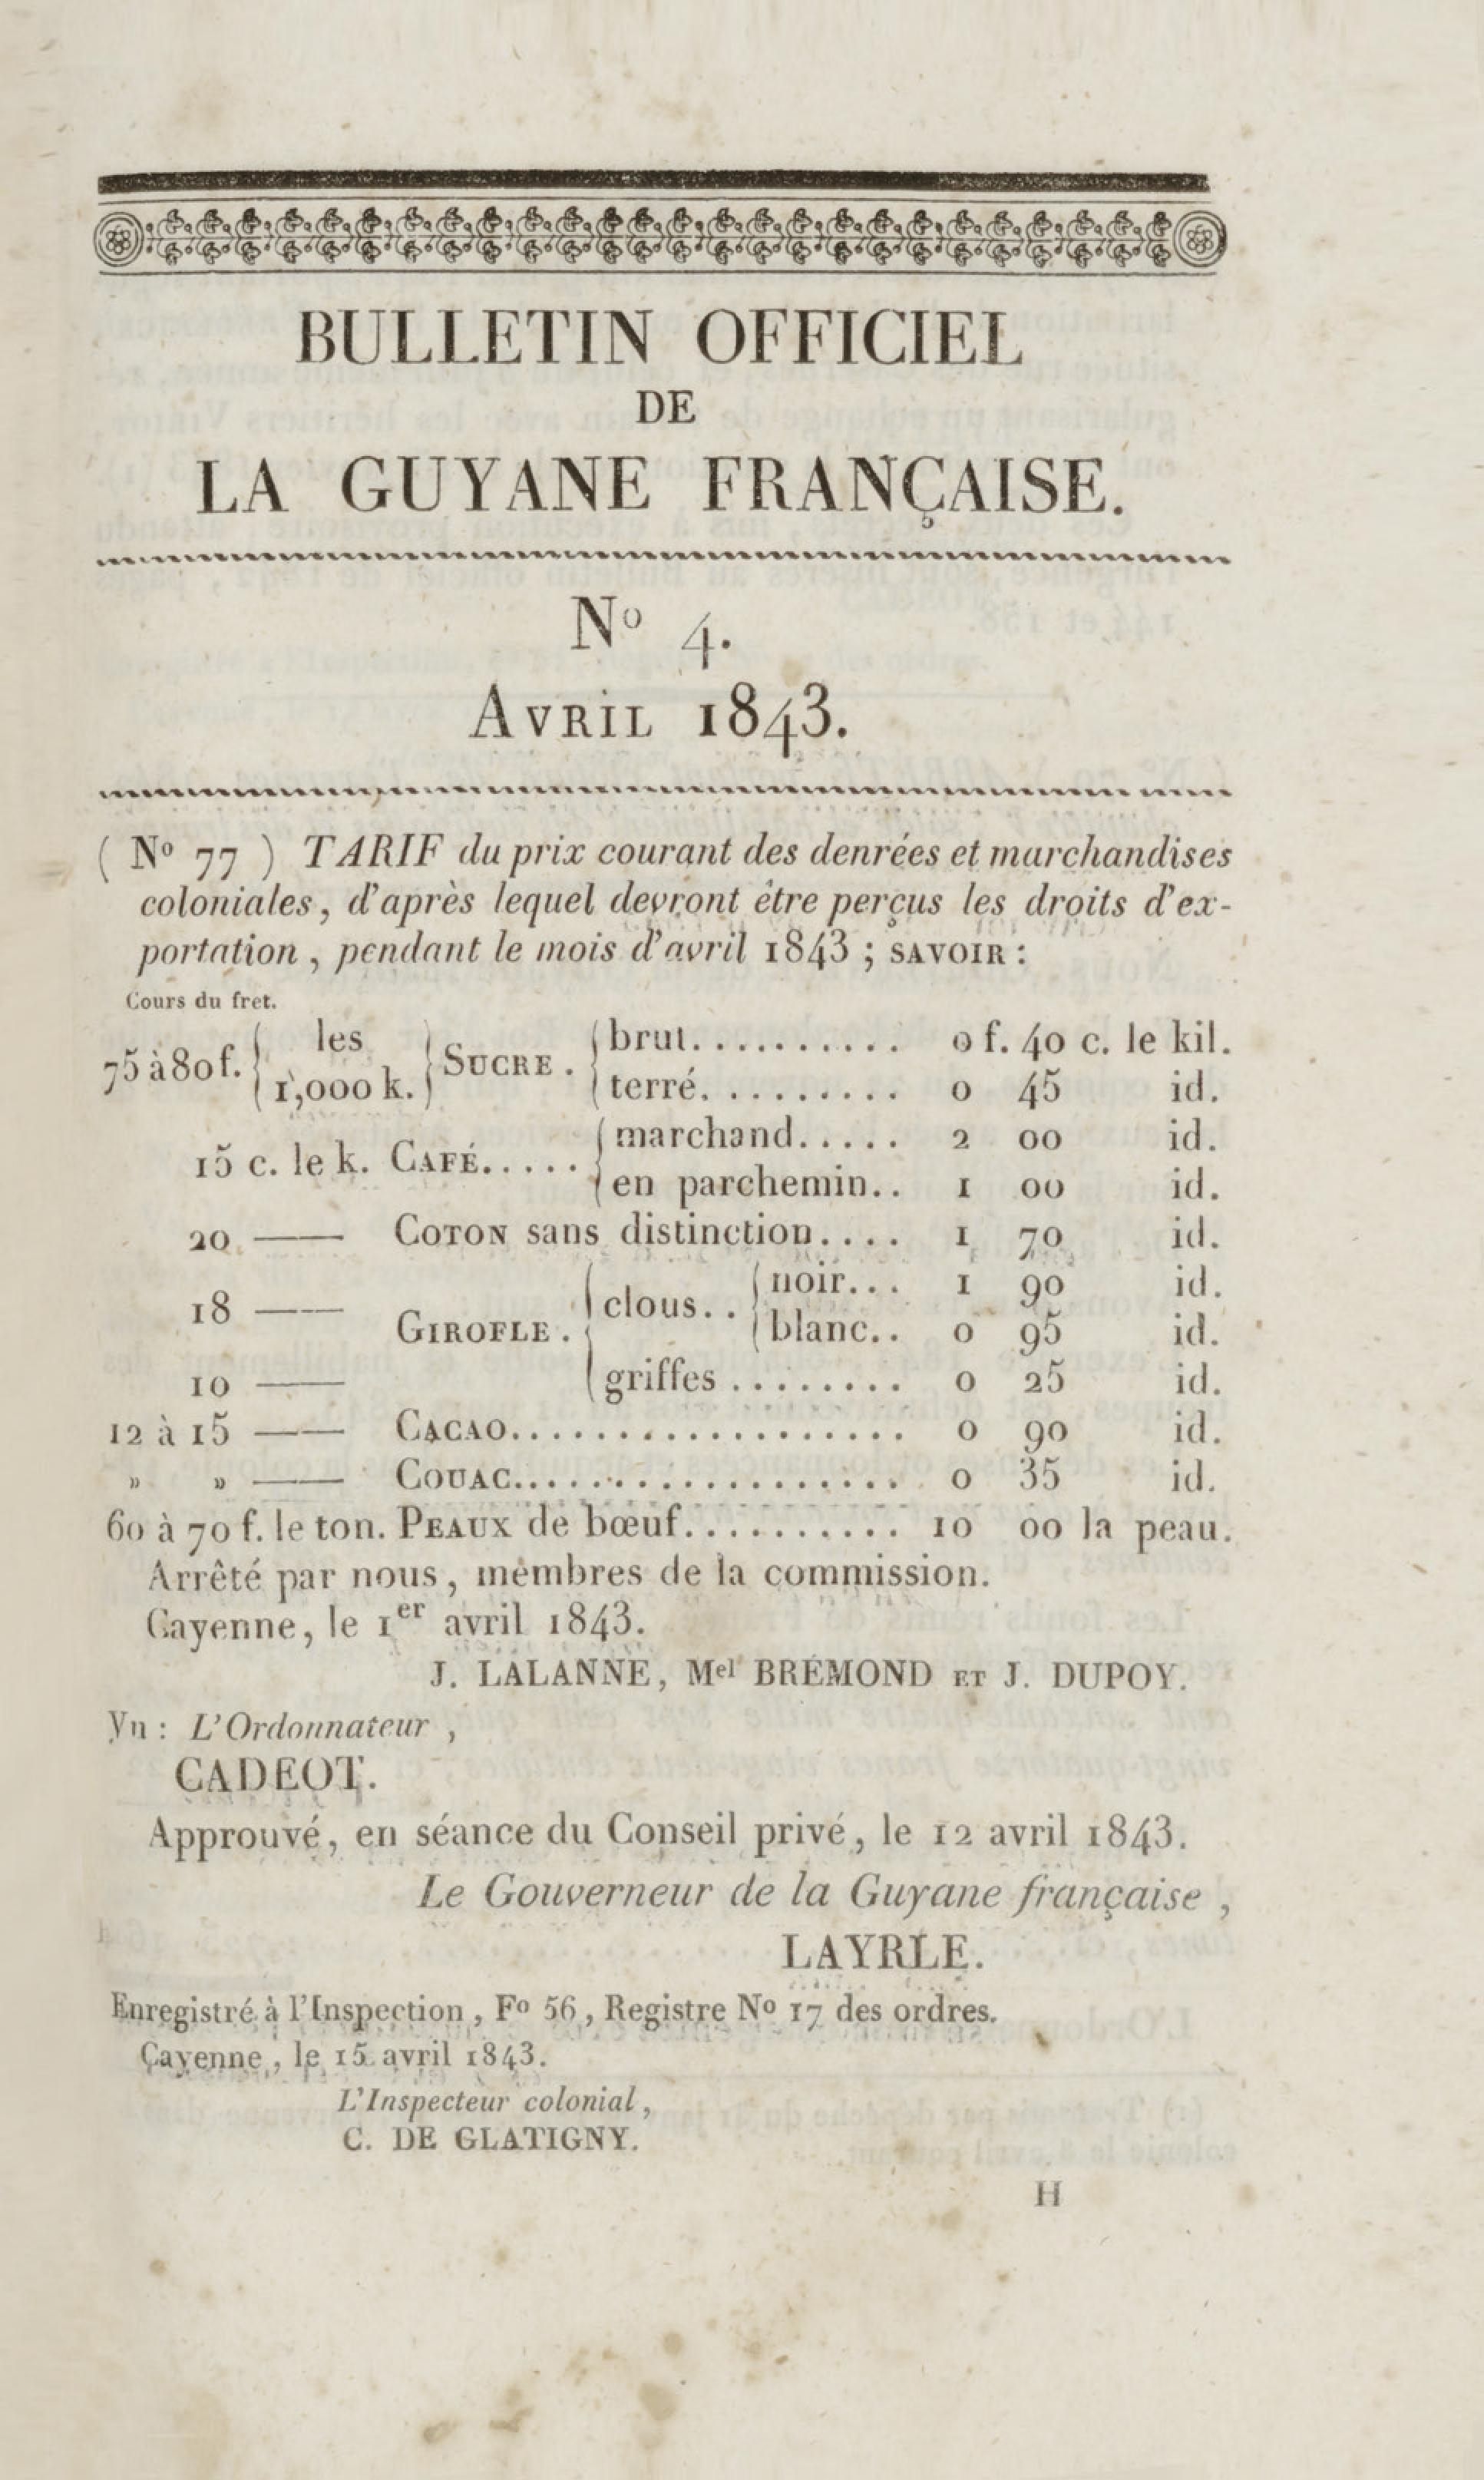 BULLETIN OFFICIEL
DE
LA GUYANE FRANÇAISE.
Nº 4.
AVRIL 1843.
( Nº 77 ) TARIF du prix courant des denrées et marchandises
coloniales, d'après lequel devront être perçus les droits d'ex-
portation, pendant le mois d'avril 1843 ; SAVOIR :
Cours du fret.
75 à 80 f. { les 1,000 k. } SUCRE . { brut.......... 0 f. 40 c. le kil.
terré......... 0 45 id.
15 c. le k. CAFÉ..... { marchand..... 2 00 id.
en parchemin.. 1 00 id.
20 —— COTON sans distinction.... 1 70 id.
18 —— GIROFLE . { clous.. { noir... 1 90 id.
blanc.. 0 95 id.
10 —— griffes ........ 0 25 id.
12 à 15 —— CACAO................... 0 90 id.
» » —— COUAC................... 0 35 id.
60 à 70 f. le ton. PEAUX de bœuf.......... 10 00 la peau.
Arrêté par nous, membres de la commission.
Cayenne, le 1er avril 1843.
J. LALANNE, Mel BRÉMOND ET J. DUPOY.
Vu : L'Ordonnateur,
CADEOT.
Approuvé, en séance du Conseil privé, le 12 avril 1843.
Le Gouverneur de la Guyane française,
LAYRLE.
Enregistré à l'Inspection, Fº 56, Registre Nº 17 des ordres.
Cayenne, le 15 avril 1843.
L'Inspecteur colonial,
C. DE GLATIGNY.
H